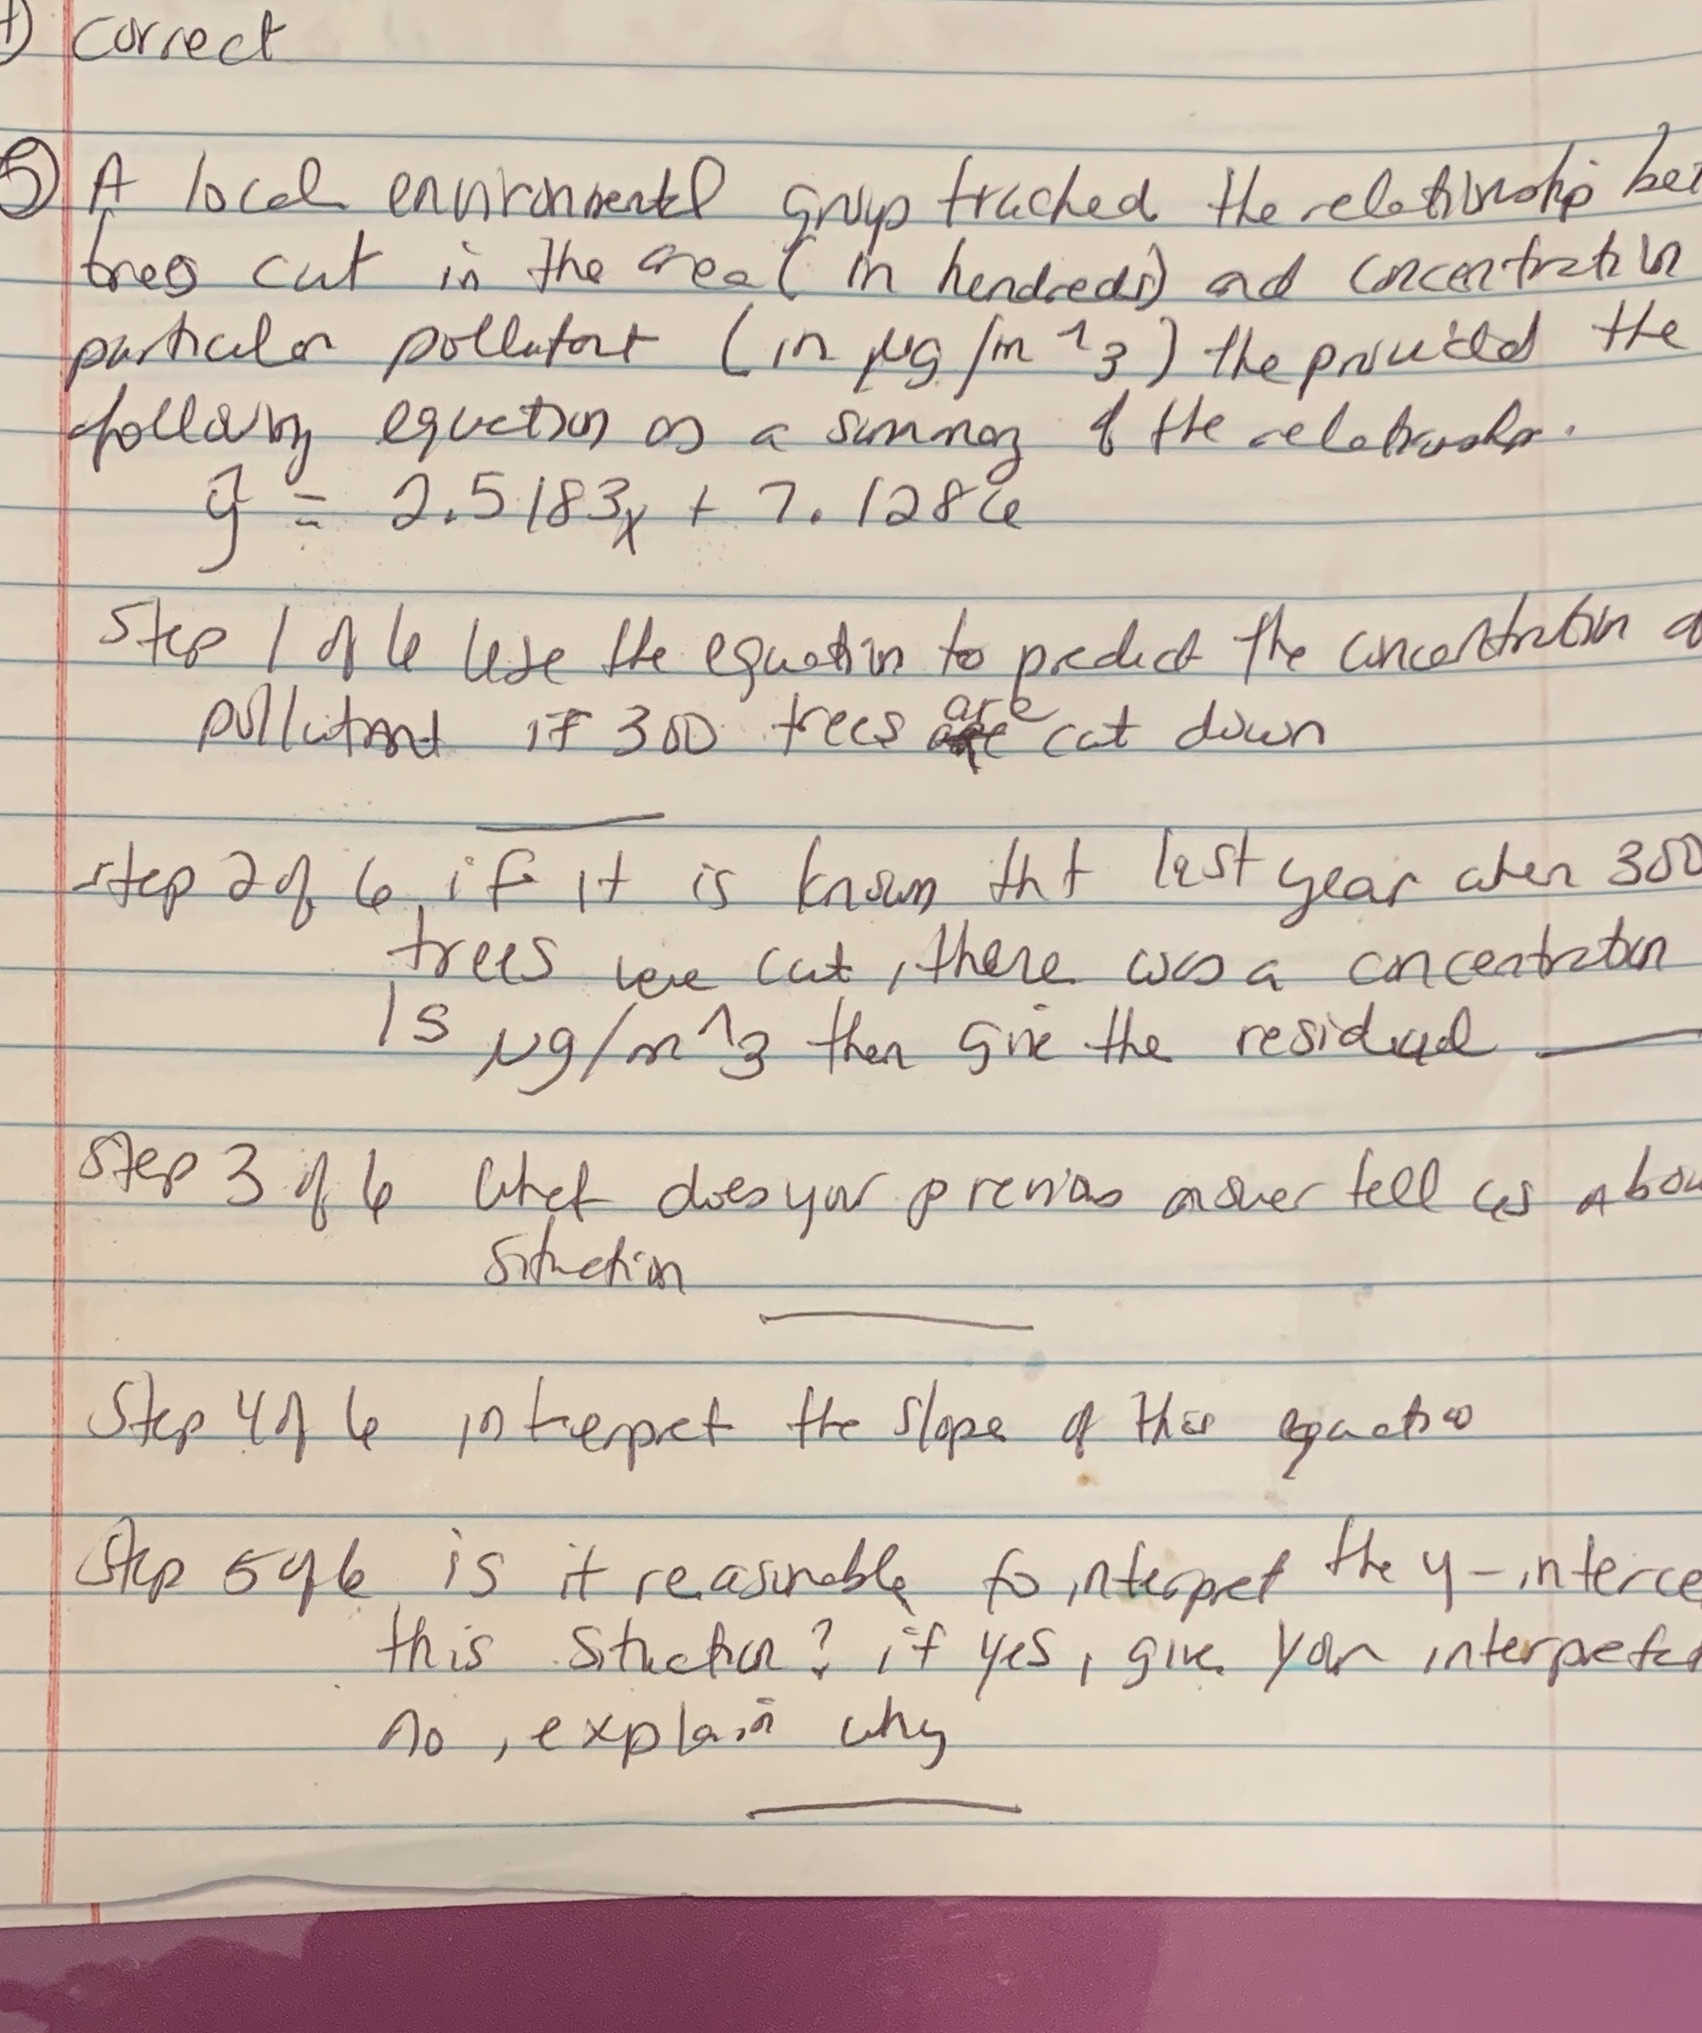 correct
5) A local environmental group tracked the relationship bet
trees cut in the area (in hundreds) and concentration
particular pollutant (in μg/m^3) the provided the
following equation as a summary of the relationship.
ŷ = 2.5183x + 7.1286
Step 1 of 6 Use the equation to predict the concentration o
pollutant if 300 trees are cut down
step 2 of 6, if it is known tht last year when 300
trees were cut, there was a concentration
15 μg/m^3 then give the residual
Step 3 of 6 What does your previous answer tell us Abou
situation
Step 4 of 6 interpret the slope of this equatio
Step 5 of 6 is it reasonable to interpret the y-interce
this situation? if yes, give your interpretat
no, explain why